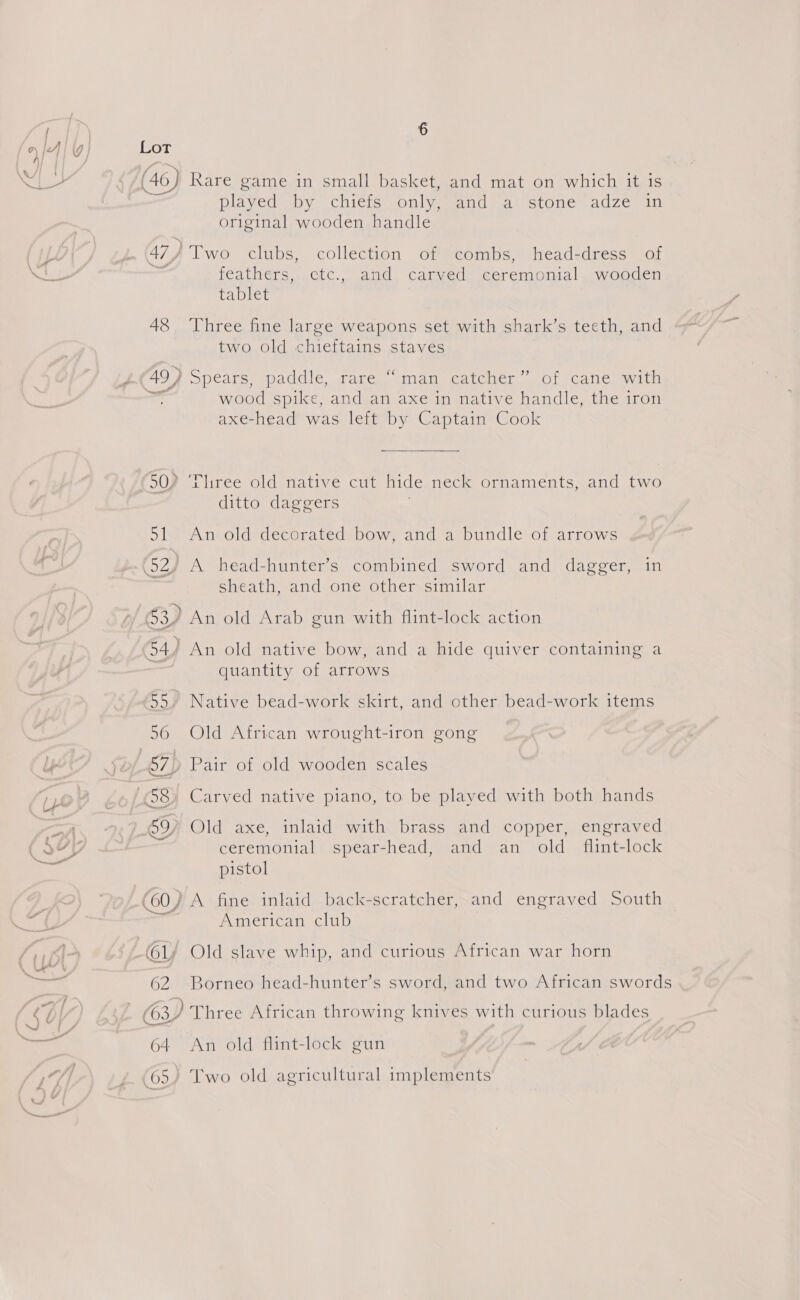 6
Lot
(46) Rare game in small basket, and mat on which it is
played by chiefs only, and a stone adze in
original wooden handle
(47) Two clubs, collection of combs, head-dress of
feathers, etc., and carved ceremonial wooden
tablet
48 Three fine large weapons set with shark's teeth, and
two old chieftains staves
(49) Spears, paddle, rare “man catcher” of cane with
wood spike, and an axe in native handle, the iron
axe-head was left by Captain Cook
(50) Three old native cut hide neck ornaments, and two
ditto daggers
51 An old decorated bow, and a bundle of arrows
(52) A head-hunter's combined sword and dagger, in
sheath, and one other similar
(53) An old Arab gun with flint-lock action
(54) An old native bow, and a hide quiver containing a
quantity of arrows
(55) Native bead-work skirt, and other bead-work items
56 Old African wrought-iron gong
(57) Pair of old wooden scales
(58) Carved native piano, to be played with both hands
(59) Old axe, inlaid with brass and copper, engraved
ceremonial spear-head, and an old flint-lock
pistol
(60) A fine inlaid back-scratcher, and engraved South
American club
(61) Old slave whip, and curious African war horn
62 Borneo head-hunter's sword, and two African swords
(63) Three African throwing knives with curious blades
64 An old flint-lock gun
(65) Two old agricultural implements